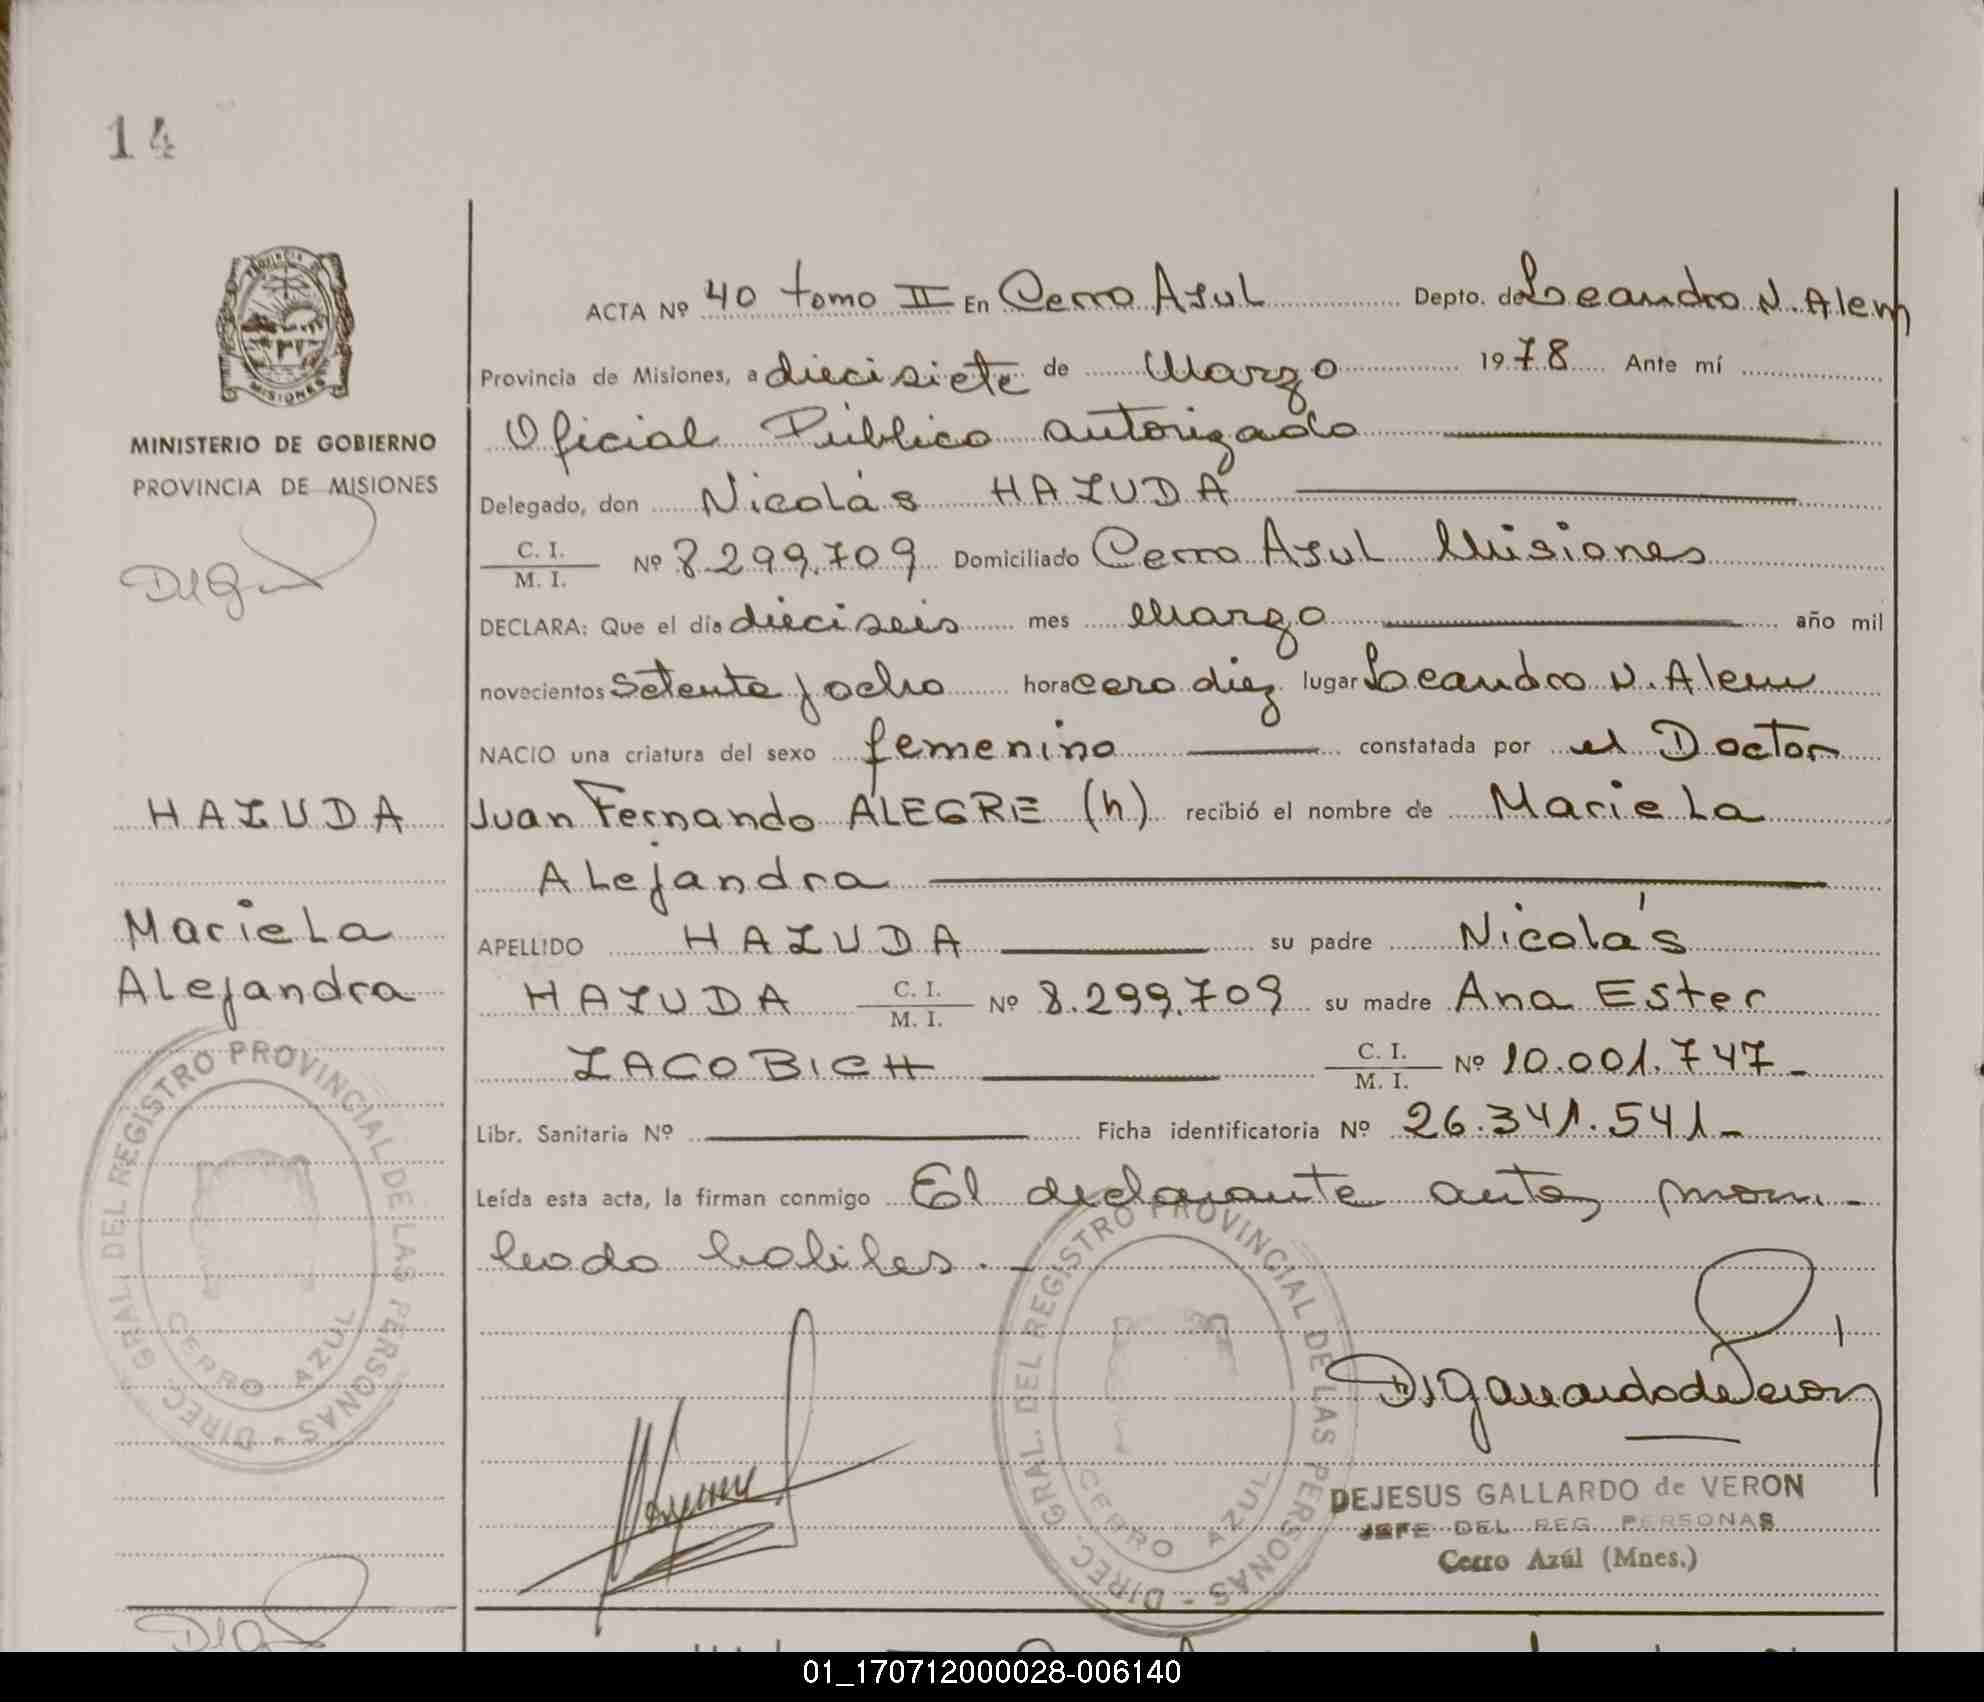 14
ACTA Nº 40 tomo II En Cerro Azul Depto. de Leandro N. Alem
Provincia de Misiones, a diecisiete de Marzo 1978 Ante mí
MINISTERIO DE GOBIERNO
PROVINCIA DE MISIONES
Oficial Público autorizado
Delegado, don Nicolás HAZUDA
C. I.
M. I. Nº 8.299.709 Domiciliado Cerro Azul Misiones
DECLARA: Que el día dieciseis mes Marzo año mil
novecientos setenta y ocho hora cero diez lugar Leandro N. Alem
NACIO una criatura del sexo femenino constatada por el Doctor
HAZUDA
Juan Fernando ALEGRE (h) recibió el nombre de Mariela
Alejandra
Mariela
Alejandra
APELLIDO HAZUDA su padre Nicolás
HAZUDA C. I.
M. I. Nº 8.299.709 su madre Ana Ester
ZACOBICH C. I.
M. I. Nº 10.001.747-
Libr. Sanitaria Nº Ficha identificatoria Nº 26.341.541-
Leída esta acta, la firman conmigo El declarante ante
habiles.-
DIREC. GRAL. DEL REGISTRO PROVINCIAL DE LAS PERSONAS -
CERRO AZUL
DIREC. GRAL. DEL REGISTRO PROVINCIAL DE LAS PERSONAS -
CERRO AZUL
DEJESUS GALLARDO de VERON
JEFE DEL REG. PERSONAS
Cerro Azúl (Mnes.)
01_170712000028-006140